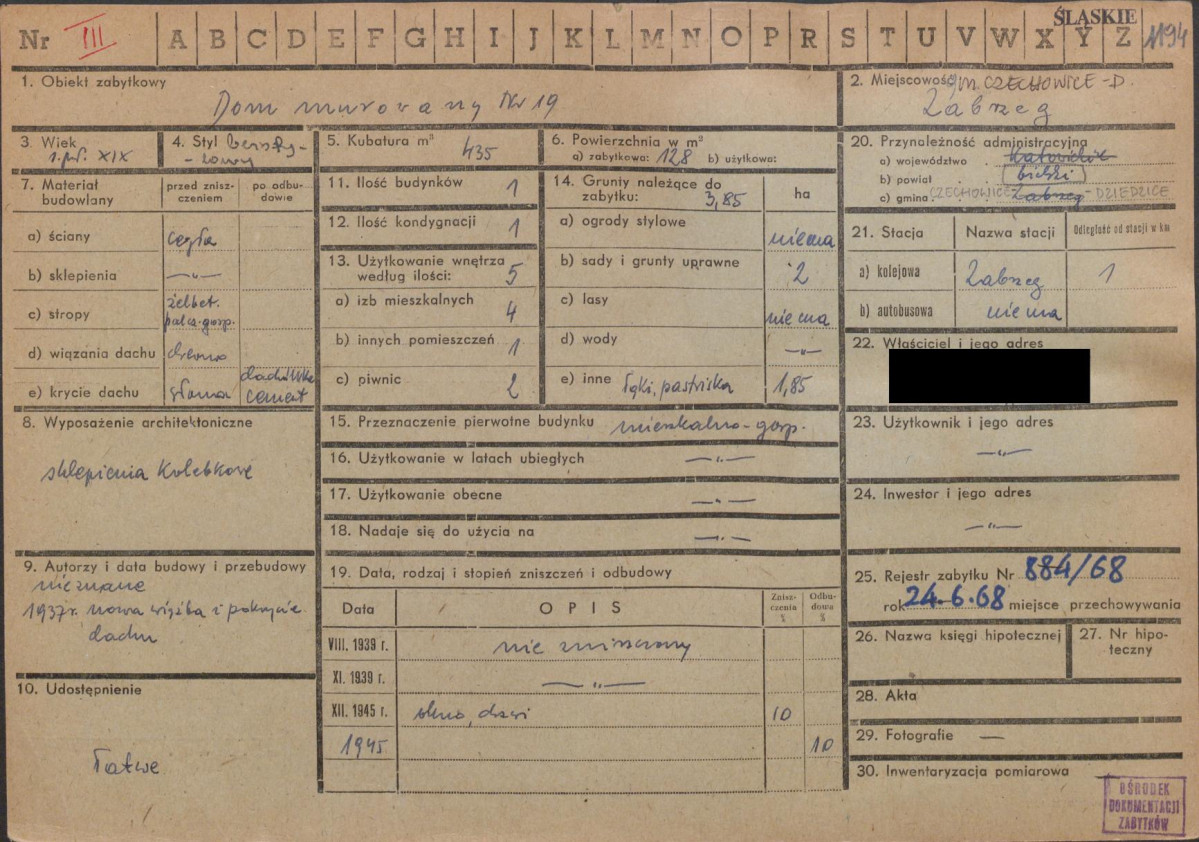 Nr III A B C D E F G H I J K L M N O P R S T U V W X Y Z
ŚLĄSKIE
1194
1. Obiekt zabytkowy
Dom murowany Nr 19
2. Miejscowość m. CZECHOWICE-D.
Zabrzeg
3. Wiek
1. poł. XIX
4. Styl bezsty-
-lowy
5. Kubatura m³
435
6. Powierzchnia w m²
a) zabytkowa: 128 b) użytkowa:
20. Przynależność administracyjna
a) województwo katowickie
b) powiat bielski
c) gmina CZECHOWICE Zabrzeg - DZIEDZICE
7. Materiał budowlany
przed znisz-
czeniem
po odbu-
dowie
a) ściany cegła
b) sklepienia —„—
c) stropy żelbet.
d) wiązania dachu drewno
e) krycie dachu słoma dachówka
cement
11. Ilość budynków 1
12. Ilość kondygnacji 1
13. Użytkowanie wnętrza
według ilości: 5
a) izb mieszkalnych 4
b) innych pomieszczeń 1
c) piwnic 2
14. Grunty należące do
zabytku: 3,85
ha
a) ogrody stylowe nie ma
b) sady i grunty uprawne 2
c) lasy nie ma
d) wody —„—
e) inne łąki, pastwiska 1,85
21. Stacja
Nazwa stacji
Odległość od stacji w km
a) kolejowa Zabrzeg 1
b) autobusowa nie ma
22. Właściciel i jego adres
8. Wyposażenie architektoniczne
sklepienia kolebkowe
15. Przeznaczenie pierwotne budynku mieszkalno-gosp.
16. Użytkowanie w latach ubiegłych —„—
17. Użytkowanie obecne —„—
18. Nadaje się do użycia na —„—
23. Użytkownik i jego adres
—„—
24. Inwestor i jego adres
—„—
9. Autorzy i data budowy i przebudowy
nieznane
1937r. nowa więźba i pokrycie
dachu
10. Udostępnienie
Łatwe
19. Data, rodzaj i stopień zniszczeń i odbudowy
Data
OPIS
Znisz-
czenia
%
Odbu-
dowa
%
VIII. 1939 r. nie zniszczony
XI. 1939 r. —„—
XII. 1945 r. okna, drzwi 10
1945 10
25. Rejestr zabytku Nr 884/68
rok 24.6.68 miejsce przechowywania
26. Nazwa księgi hipotecznej
27. Nr hipo-
teczny
28. Akta
29. Fotografie —
30. Inwentaryzacja pomiarowa
OŚRODEK
DOKUMENTACJI
ZABYTKÓW